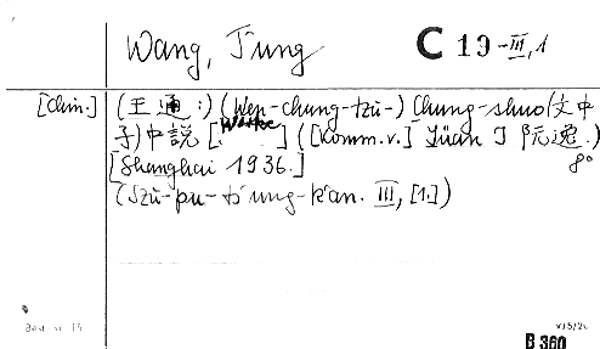 Wang, T'ung C 19-III,1
[Chin.] (王通:) (Wen-chung-tzŭ-) Chung-shuo (文中
子)中說 [Werke] ([Komm.v.] Yüan I 阮逸.)
[Shanghai 1936.] 8°
(Szŭ-pu-ts'ung-k'an. III, [1.])
B 360